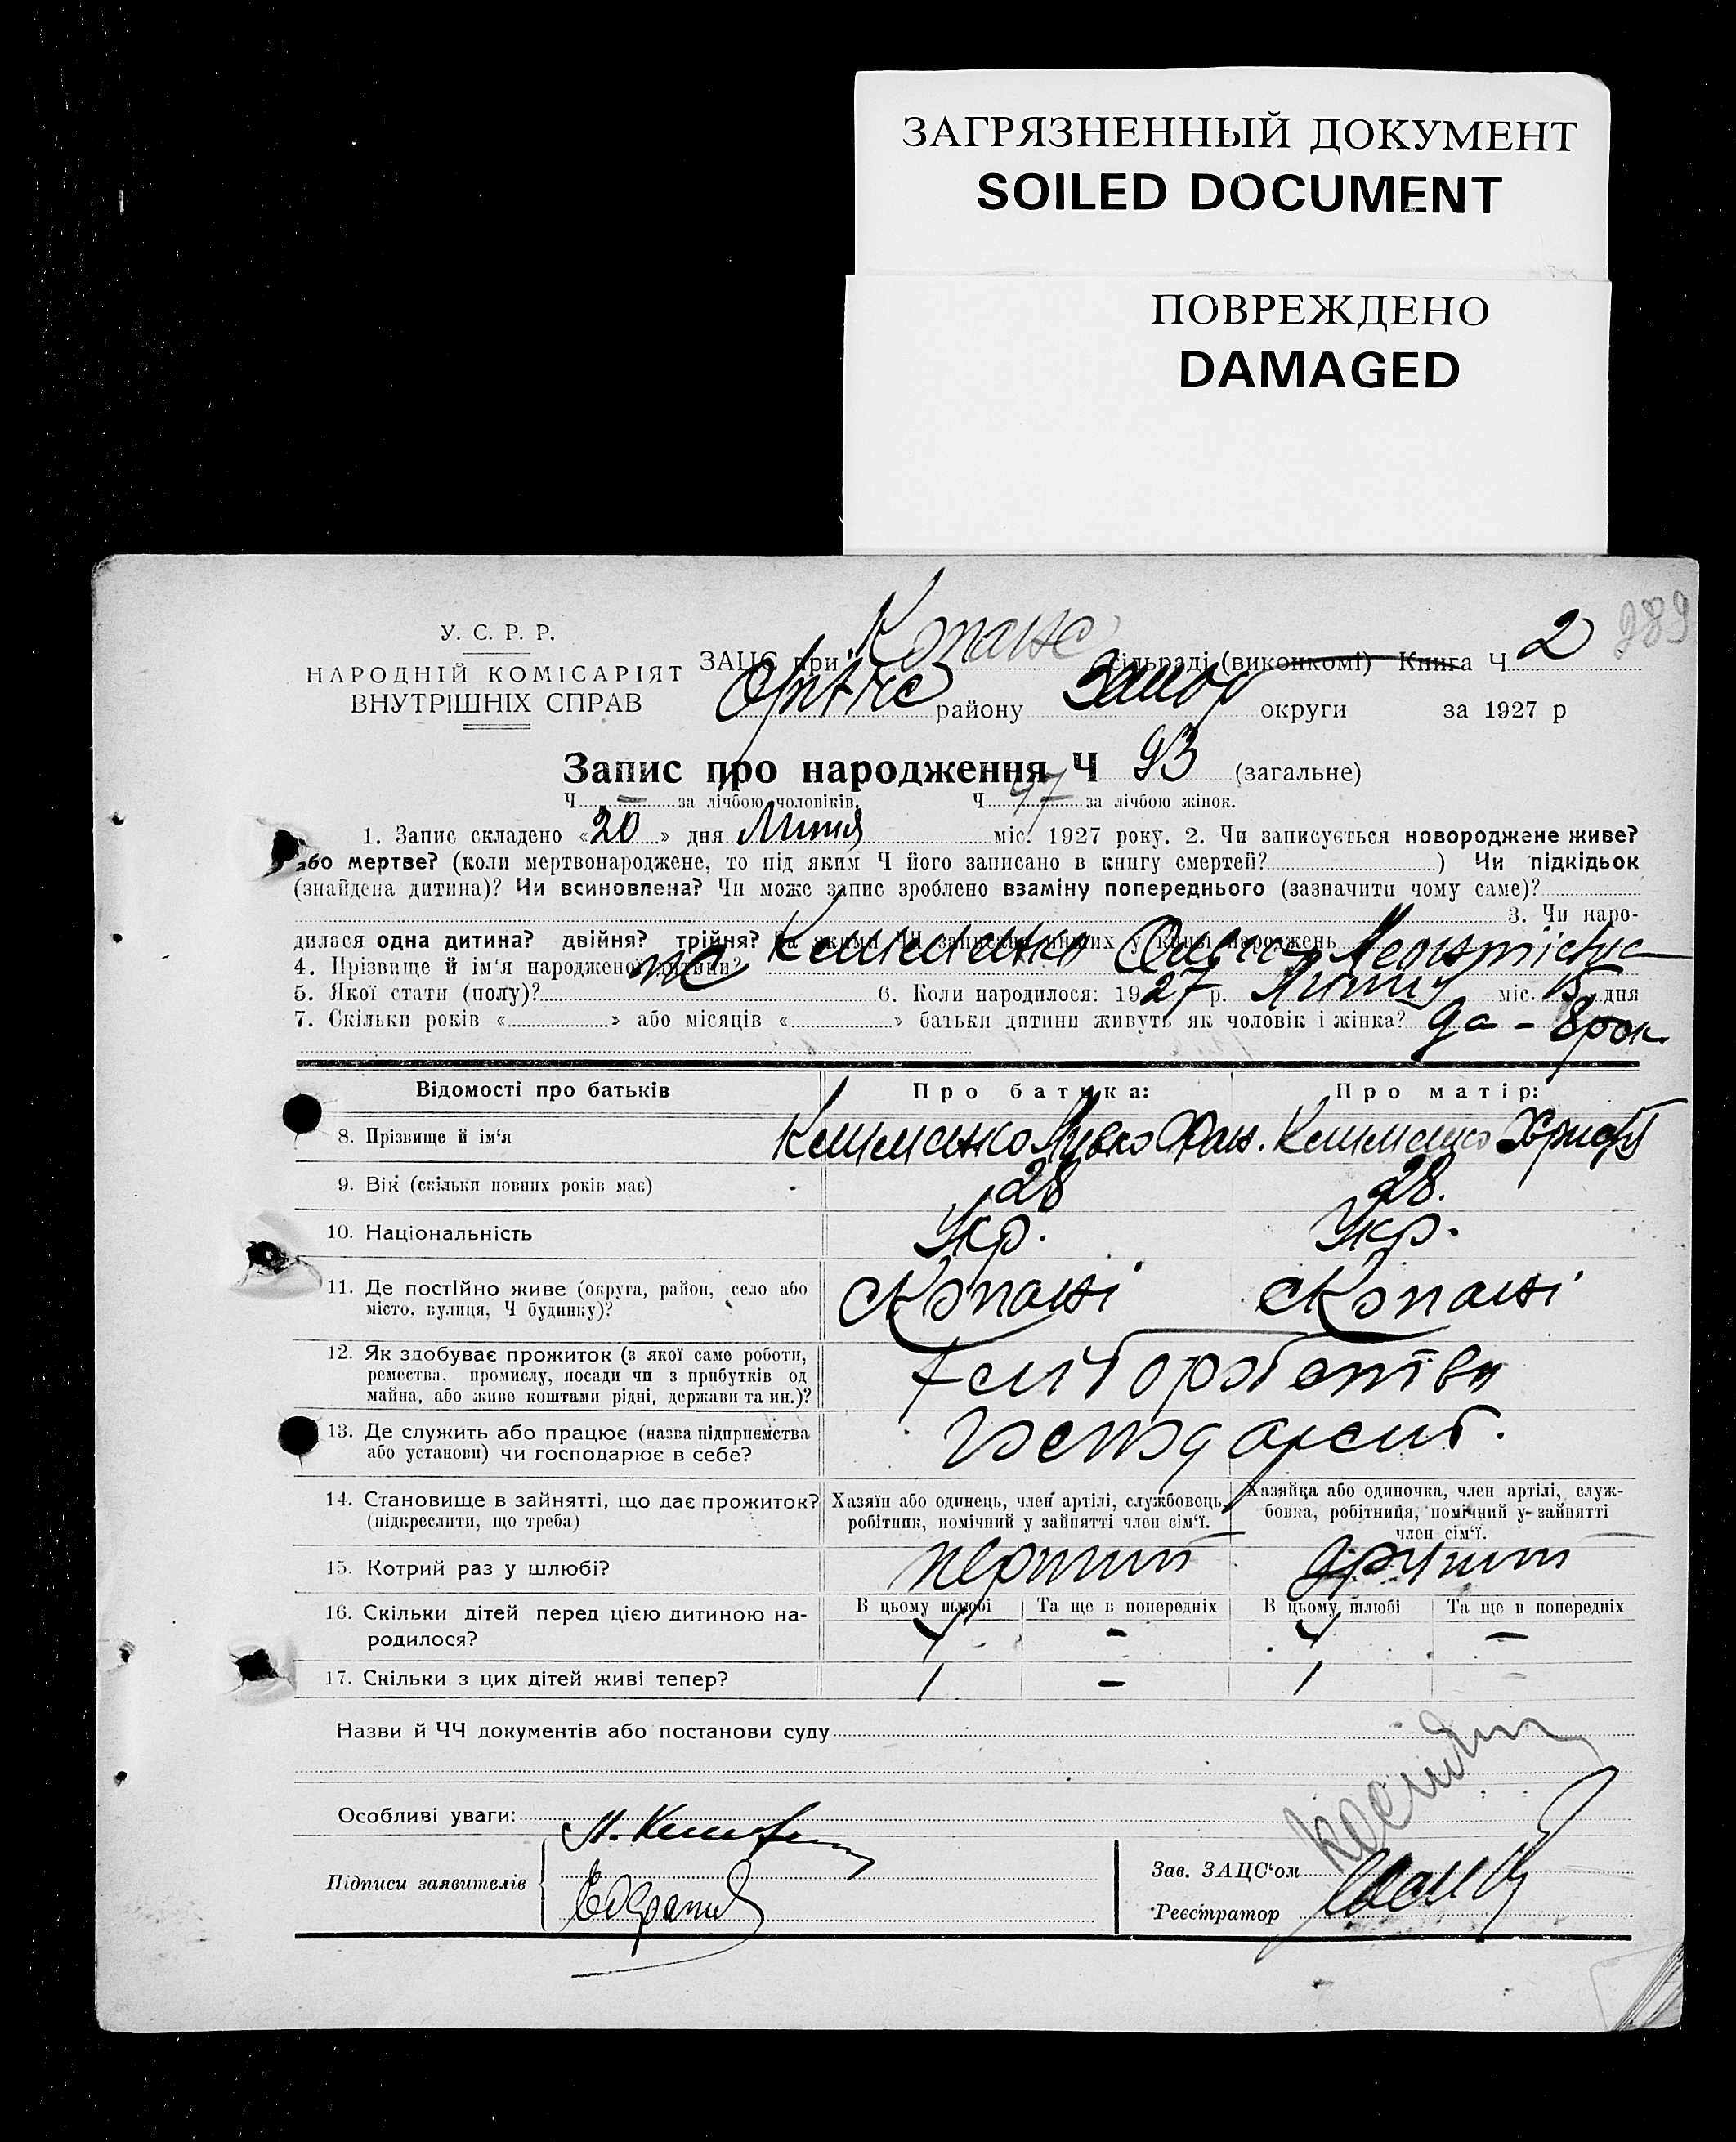 ЗАГРЯЗНЕННЫЙ ДОКУМЕНТ
SOILED DOCUMENT
ПОВРЕЖДЕНО
DAMAGED
289
У. С. Р. Р.
НАРОДНІЙ КОМІСАРІЯТ
ВНУТРІШНІХ СПРАВ
ЗАЦС при Копанс сільраді (виконкомі) Книга Ч 2
району округи за 1927 р
Запис про народження Ч 93 (загальне)
Ч — за лічбою чоловіків. Ч 47 за лічбою жінок.
1. Запис складено «20» дня Липня міс. 1927 року. 2. Чи записується новороджене живе?
або мертве? (коли мертвонароджене, то під яким Ч його записано в книгу смертей? ) Чи підкідьок
(знайдена дитина)? Чи всиновлена? Чи може запис зроблено взаміну попереднього (зазначити чому саме)?
3. Чи наро-
дилася одна дитина? двійня? трійня? За якими ЧЧ записано инших у книзі народжень
4. Прізвище й ім'я народженої дитини? Клименко
5. Якої стати (полу)? жс 6. Коли народилося: 1927 р. Липня міс. 15 дня
7. Скільки років « » або місяців « » батьки дитини живуть як чоловік і жінка? да - 8 рок.
Відомості про батьків Про батька: Про матір:
8. Прізвище й ім'я Клименко Левко Клименко Христя
9. Вік (скільки повних років має) 28 28.
10. Національність Укр. Укр.
11. Де постійно живе (округа, район, село або
місто, вулиця, Ч будинку)? с Копані с Копані
12. Як здобуває прожиток (з якої саме роботи,
ремества, промислу, посади чи з прибутків од
майна, або живе коштами рідні, держави та ин.)? хліборобство
13. Де служить або працює (назва підприємства
або установи) чи господарює в себе? господарств.
14. Становище в зайнятті, що дає прожиток?
(підкреслити, що треба)
Хазяїн або одинець, член артілі, службовець,
робітник, помічний у зайнятті член сім'ї.
Хазяйка або одиночка, член артілі, служ-
бовка, робітниця, помічний у зайнятті
член сім'ї.
15. Котрий раз у шлюбі? перший другий
16. Скільки дітей перед цією дитиною на-
родилося?
В цьому шлюбі Та ще в попередніх В цьому шлюбі Та ще в попередніх
— —
17. Скільки з цих дітей живі тепер? 1 — 1 —
Назви й ЧЧ документів або постанови суду
Особливі уваги:
Підписи заявителів
Зав. ЗАЦС'ом
Реєстратор